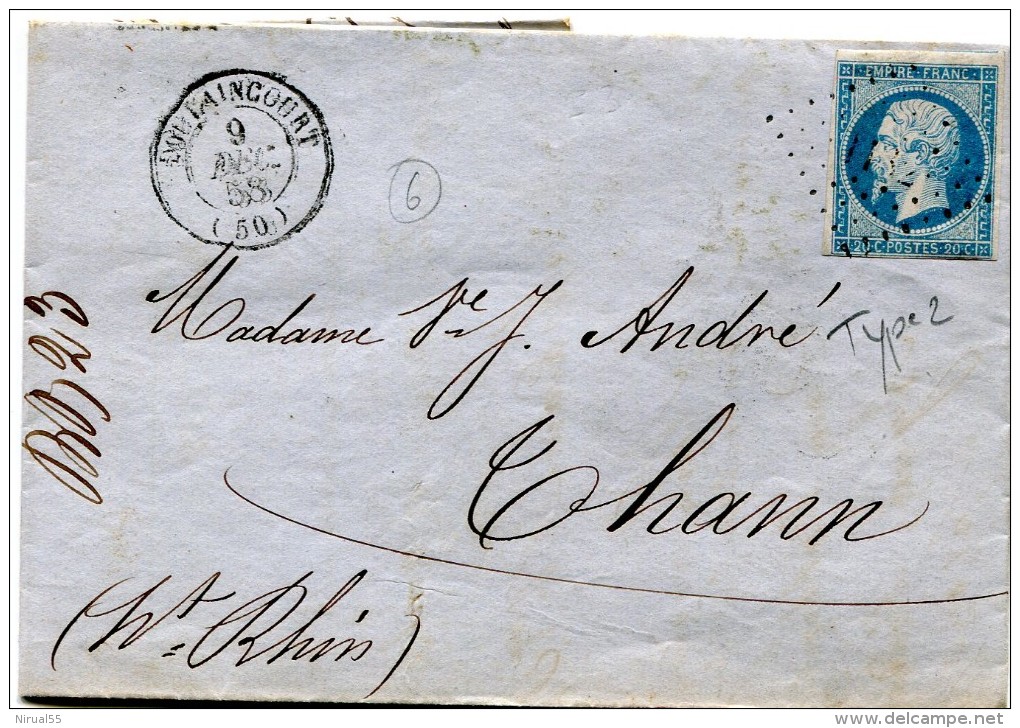 DOULAINCOURT
9
DEC.
58
(50)
6
EMPIRE FRANC
20 C POSTES 20 C
Madame Ve J. André
Type 2
Thann
(Ht Rhin)
Nirual55
www.delcampe.net